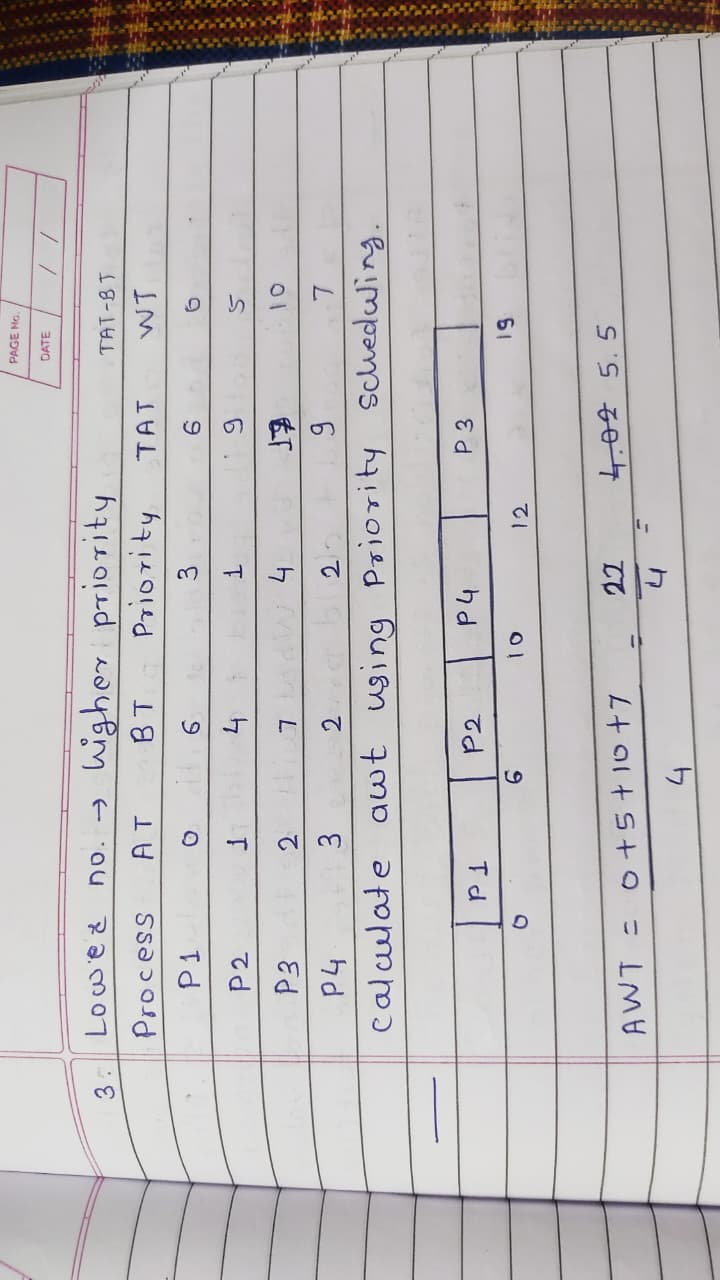 PAGE No.
DATE / /
3. Lower no. → higher priority TAT-BT
Process AT BT Priority TAT WT
P1 0 6 3 6 0
P2 1 4 1 9 5
P3 2 7 4 17 10
P4 3 2 2 9 7
calculate awt using Priority scheduling.
P1 P2 P4 P3
0 6 10 12 19
AWT = 0+5+10+7 = 22 = 5.5
4 4